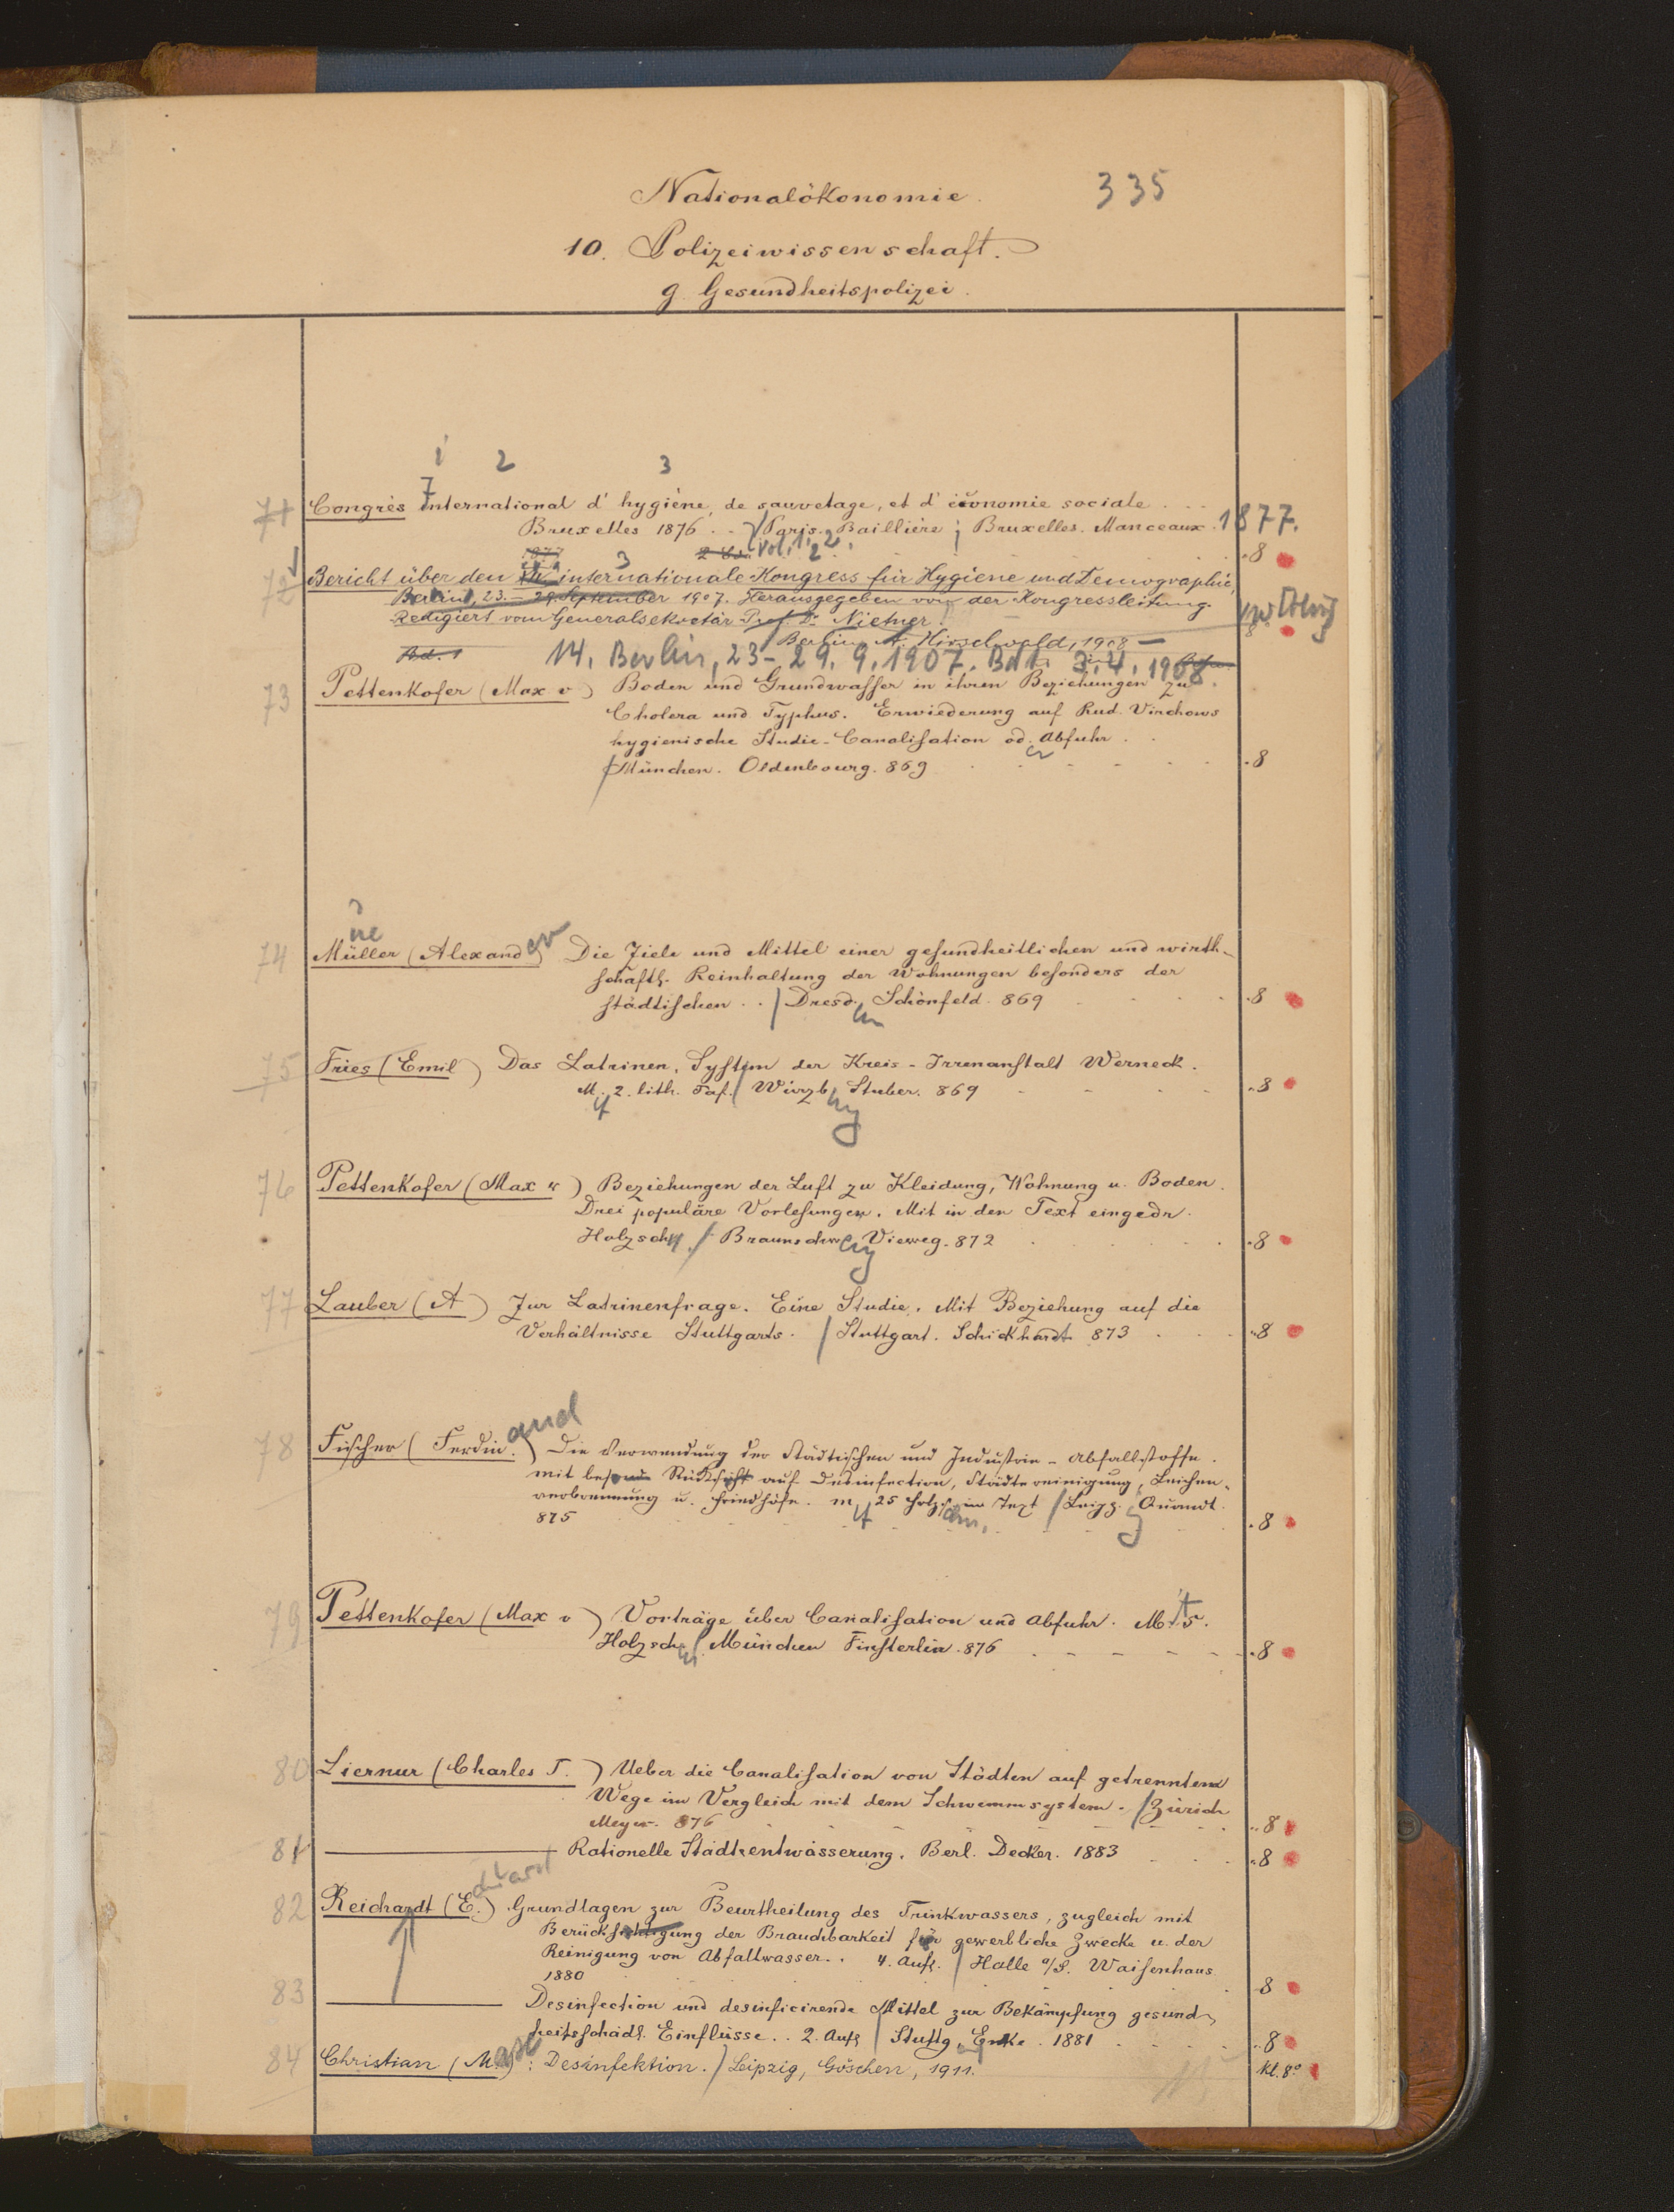 Nationalökonomie. 335
10. Polizeiwissenschaft.
g. Gesundheitspolizei.
1 2 3
71 Congrès International d' hygiène, de sauvetage, et d' économie sociale . . .
Bruxelles 1876 . . Paris. Baillière; Bruxelles. Manceaux. 1877.
1877 2 Vol. 1. 2. 8
72 Bericht über den internationale Kongress für Hygiene und Demographie,
Berlin, 23.–29. September 1907. Herausgegeben von der Kongressleitung.
Redigiert vom Generalsekretär Prof. Dr. Nietner. 8
Berlin A. Hirschwald, 1908 —
Bd. 1 14. Berlin, 23–29. 9. 1907. Bd 1. 3, 4. 1908.
73 Pettenkofer (Max v) Boden und Grundwasser in ihren Beziehungen zu
Cholera und Typhus. Erwiederung auf Rud. Virchows
hygienische Studie-Canalisation od. Abfuhr . .
München. Oldenbourg. 869 . 8
74 Müller (Alexander) Die Ziele und Mittel einer gesundheitlichen und wirth-
schaftl. Reinhaltung der Wohnungen besonders der
städtischen . . / Dresden Schönfeld. 869 . 8
75 Fries (Emil) Das Latrinen-System der Kreis-Irrenanstalt Werneck.
M. 2. lith. Taf. / Würzb. Stuber. 869 . 8
76 Pettenkofer (Max v) Beziehungen der Luft zu Kleidung, Wohnung u. Boden.
Drei populäre Vorlesungen. Mit in den Text eingedr.
Holzschn. / Braunschweig Vieweg. 872 . 8
77 Lauber (A) Zur Latrinenfrage. Eine Studie. Mit Beziehung auf die
Verhältnisse Stuttgarts. / Stuttgart. Schickhardt 873 . 8
78 Fischer (Ferdinand) Die Verwendung der Städtischen und Industrie-Abfallstoffe.
mit besond. Rücksicht auf Desinfection, Städtereinigung, Leichen-
verbrennung u. Friedhöfe. m. 25 Holzschn. im Text / Leipz. Quandt.
875 . 8
79 Pettenkofer (Max v) Vorträge über Canalisation und Abfuhr. Mit 5.
Holzschn. / München Finsterlin. 876 . 8
80 Liernur (Charles T.) Ueber die Canalisation von Städten auf getrenntem
Wege im Vergleich mit dem Schwemmsystem. / Zürich
Meyer. 876 . 8
81 ——— Rationelle Stadtentwässerung. Berl. Decker. 1883 . 8
82 Reichardt (Eduard) Grundlagen zur Beurtheilung des Trinkwassers, zugleich mit
Berücksichtigung der Brauchbarkeit für gewerbliche Zwecke u. der
Reinigung von Abfallwasser. . 4. Aufl. / Halle a/S. Waisenhaus
1880 8
83 ——— Desinfection und desinficirende Mittel zur Bekämpfung gesund-
heitsschädl. Einflüsse. . 2. Aufl / Stuttg. Enke. 1881 . 8
84 Christian (Max): Desinfektion. / Leipzig, Göschen, 1911. Kl. 8°